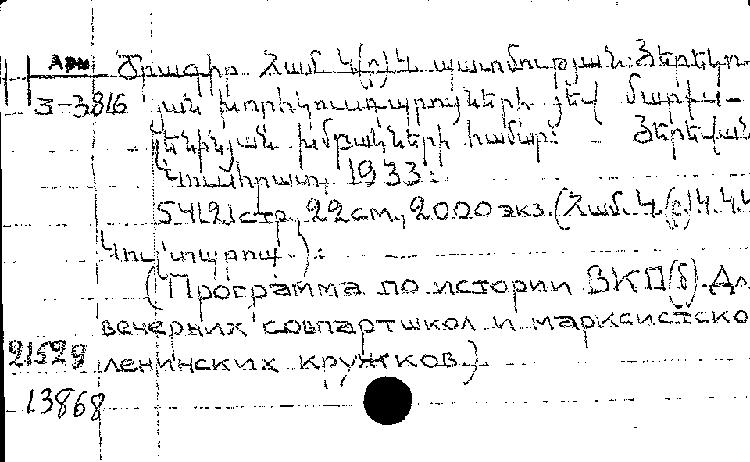 Арм Ծրագիր Համ Կ(բ)Կ պատմության: Յերեկո-
3-3816 յան խորհկուսդպրոցների յեվ մարքս-
լենինյան խմբակների համար: Յերեվան
Կուսհրատ, 1933:
54[2] стр, 22 см, 2000 экз. (Համ. Կ.(բ)Կ Կ.Կ
Կուլտպրոպ.):
(Программа по истории ВКП(б). Дл
вечерних совпартшкол и марксистско
21529 ленинских кружков.)
13868